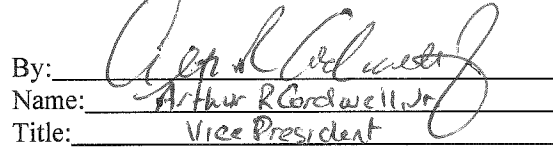 By:
Name: Arthur R Cordwell, Jr
Title: Vice President